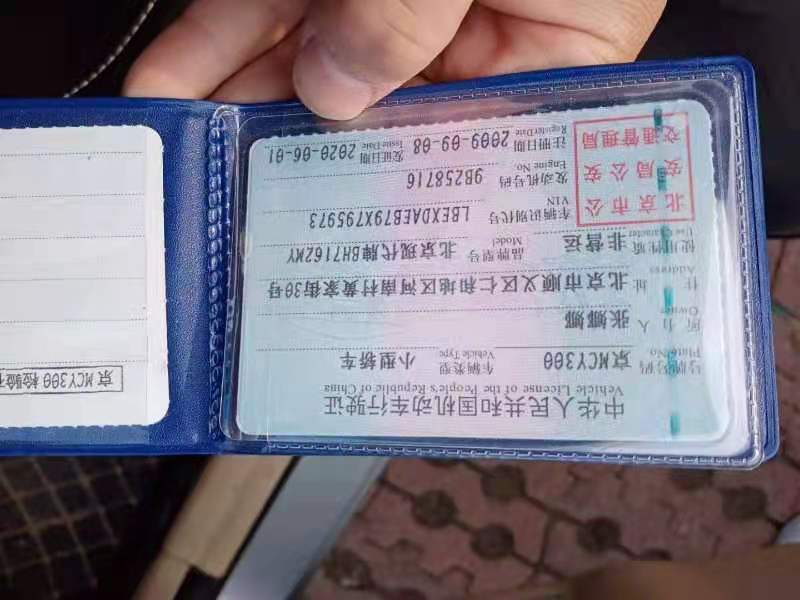 中华人民共和国机动车行驶证
Vehicle License of the People's Republic of China
号牌号码 京MCY300 车辆类型 小型轿车
Plate No. Vehicle Type
所有人 张娜娜
Owner
住址 北京市顺义区仁和地区河南村黄家街30号
Address
使用性质 非营运 品牌型号 北京现代牌BH7162MY
Use Character Model
车辆识别代号 LBEXDAEB79X795973
VIN
发动机号码 9B258716
Engine No.
注册日期 2009-09-08 发证日期 2020-06-01
Register Date Issue Date
北京市公
安局公安
交通管理局
京MCY300 检验